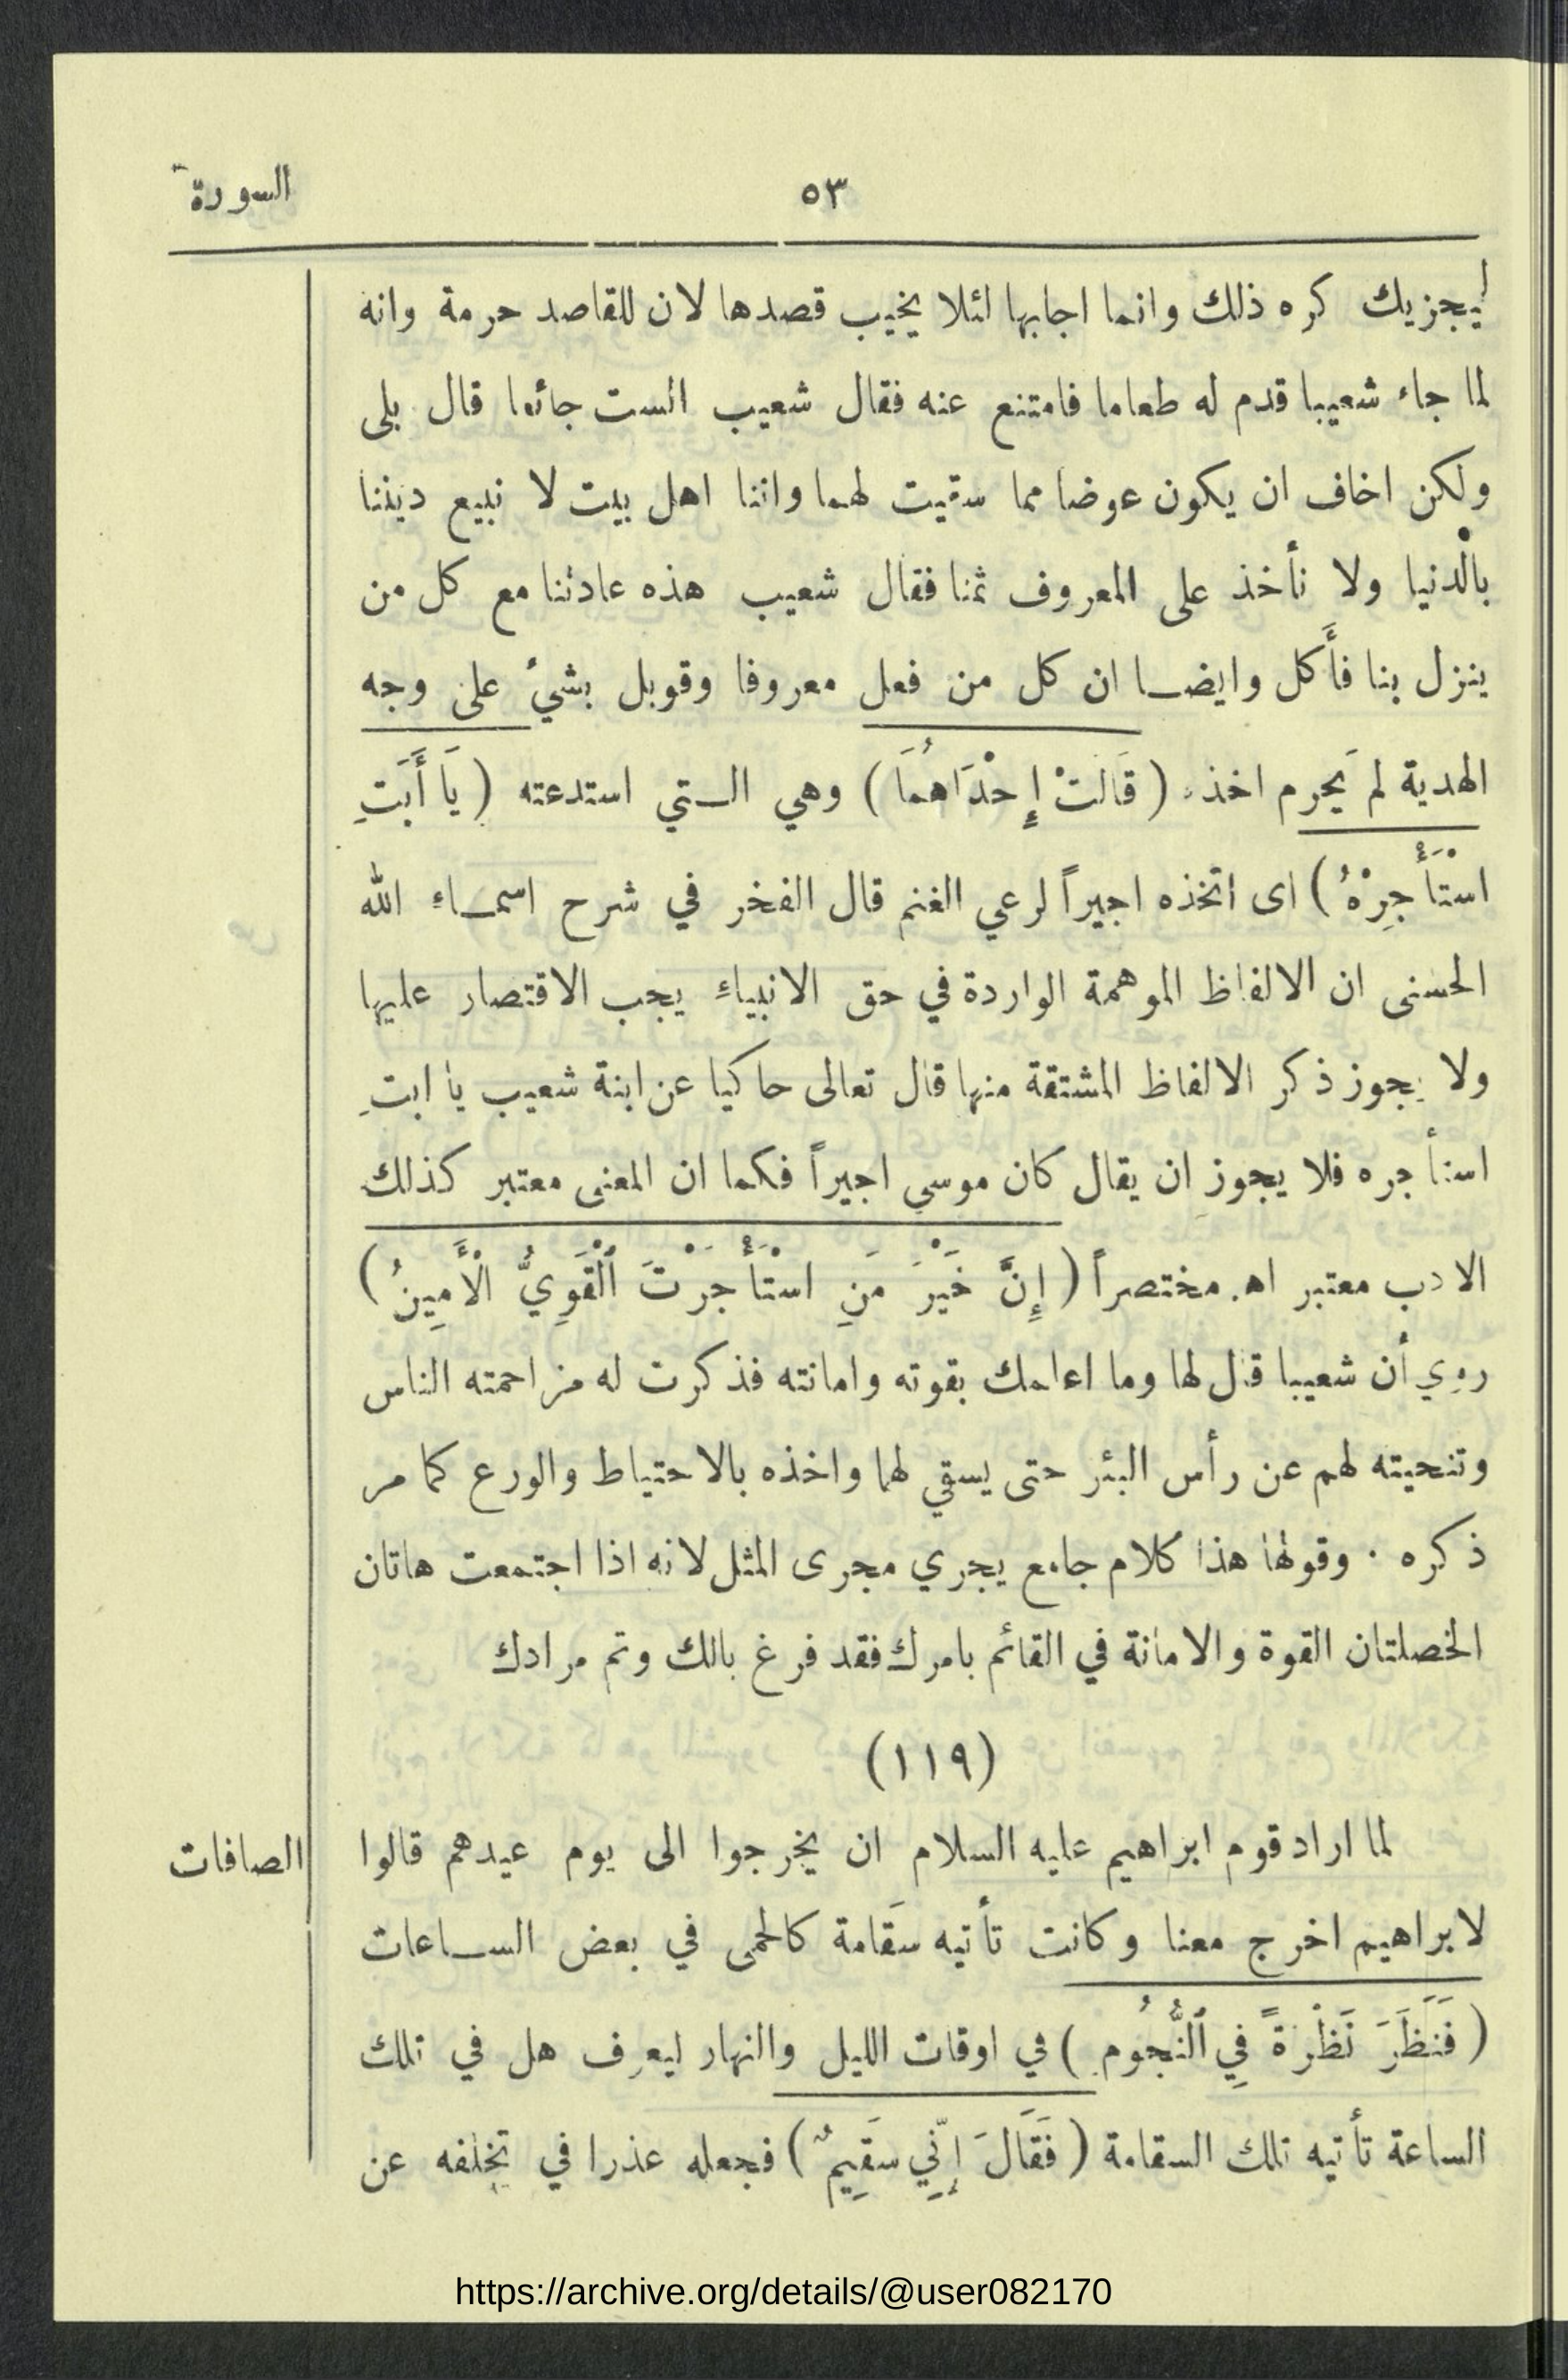 السورة
٥٣
ليجزيك كره ذلك وانما اجابها لئلا يخيب قصدها لان للقاصد حرمة وانه
لما جاء شعيبا قدم له طعاما فامتنع عنه فقال شعيب الست جائعا قال بلى
ولكن اخاف ان يكون عوضا مما سقيت لهما واننا اهل بيت لا نبيع ديننا
بالْدنيا ولا نأخذ على المعروف ثمنا فقال شعيب هذه عادتنا مع كل من
ينزل بنا فأَكل وايضا ان كل من فعل معروفا وقوبل بشيء على وجه
الهدية لم يَحرم اخذه (قَالَتْ إِحْدَاهُمَا) وهي التي استدعته (يَا أَبَتِ
اسْتَأْجِرْهُ) اى اتخذه اجيراً لرعي الغنم قال الفخر في شرح اسماء الله
الحسنى ان الالفاظ الموهمة الواردة في حق الانبياءِ يجب الاقتصار عليها
ولا يجوز ذكر الالفاظ المشتقة منها قال تعالى حاكيا عن ابنة شعيب يا ابتِ
استأجره فلا يجوز ان يقال كان موسي اجيراً فكما ان المعنى معتبر كذلك
الادب معتبر اه. مختصراً (إِنَّ خَيْرَ مَنِ اسْتَأْجَرْتَ ٱلْقَوِيُّ الْأَمِينُ)
روي أن شعيبا قال لها وما اعلمك بقوته وامانته فذكرت له مزاحمته الناس
وتنحيته لهم عن رأس البئر حتى يسقي لهما واخذه بالاحتياط والورع كما مر
ذكره . وقولها هذا كلام جامع يجري مجرى المثل لانه اذا اجتمعت هاتان
الخصلتان القوة والامانة في القائم بامرك فقد فرغ بالك وتم مرادك
(١١٩)
الصافات
لما اراد قوم ابراهيم عليه السلام ان يخرجوا الى يوم عيدهم قالوا
لابراهيم اخرج معنا وكانت تأتيه سَقامة كالحمى في بعض الساعات
(فَنَظَرَ نَظْرَةً فِي ٱلنُّجُومِ) في اوقات الليل والنهار ليعرف هل في تلك
الساعة تأتيه تلك السقامة (فَقَالَ إِنِّي سَقِيمٌ) فجعله عذرا في تخلفه عن
https://archive.org/details/@user082170